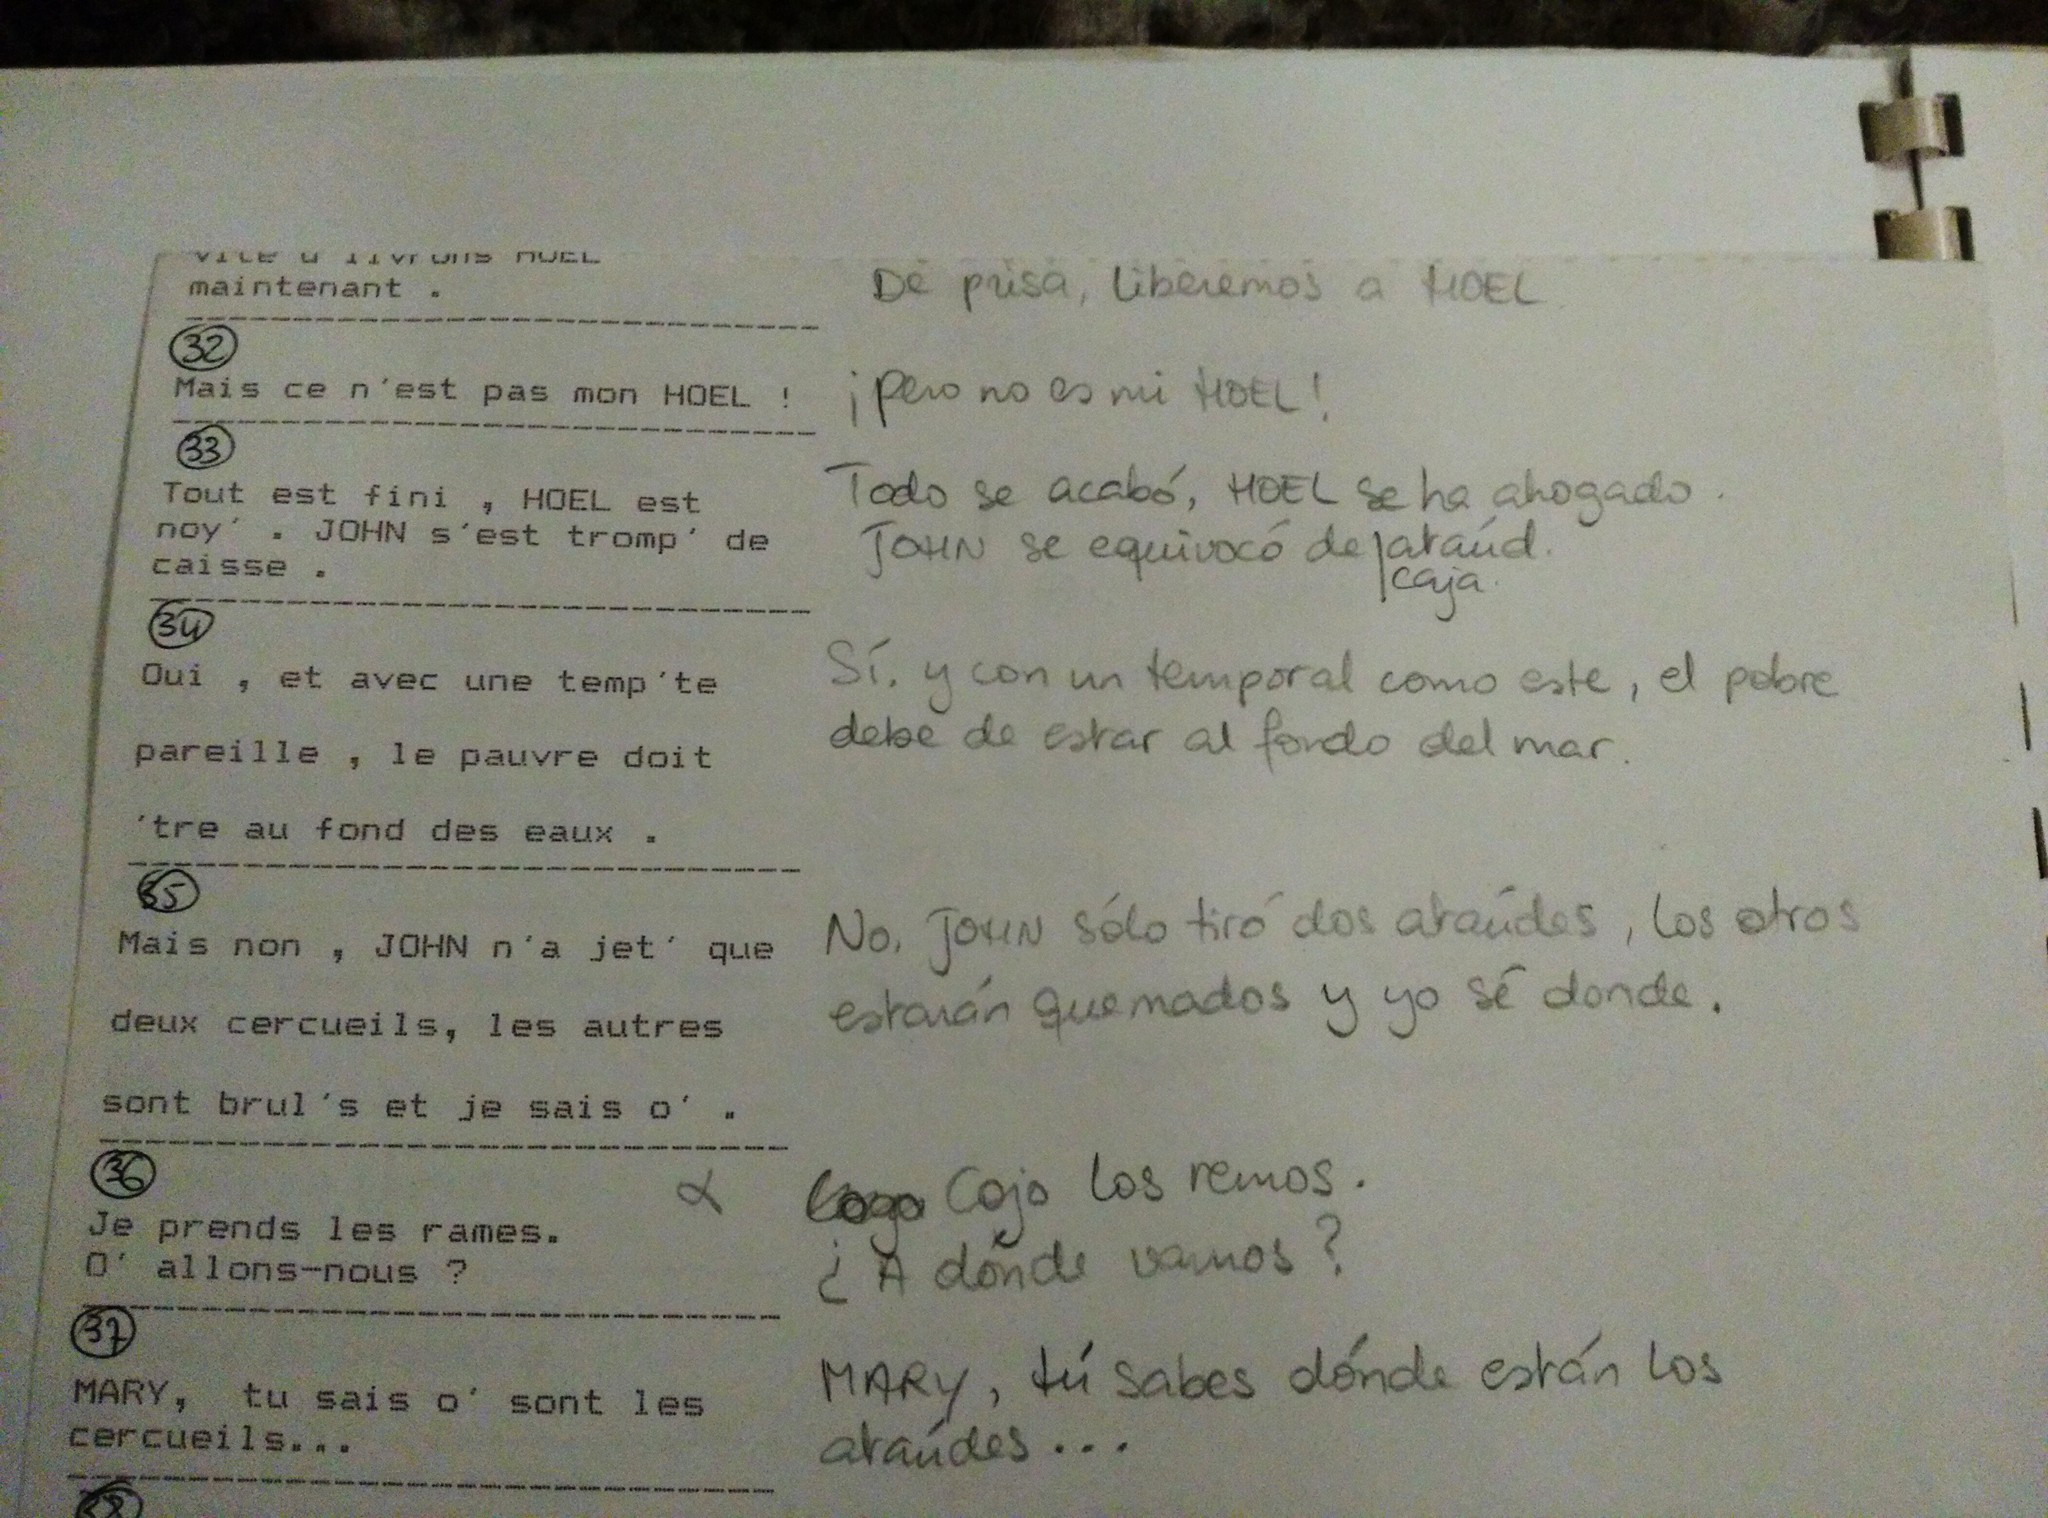 vite d'livrons HOEL
maintenant .
De prisa, liberemos a HOEL
32
Mais ce n'est pas mon HOEL !
¡pero no es mi HOEL!
33
Tout est fini , HOEL est
noy' . JOHN s'est tromp' de
caisse .
Todo se acabó, HOEL se ha ahogado.
JOHN se equivocó de ataúd.
caja.
34
Oui , et avec une temp'te
pareille , le pauvre doit
'tre au fond des eaux .
Sí. y con un temporal como este, el pobre
debe de estar al fondo del mar.
35
Mais non , JOHN n'a jet' que
deux cercueils, les autres
sont brul's et je sais o' .
No, JOHN sólo tiró dos ataúdes, los otros
estarán quemados y yo sé donde.
36
Je prends les rames.
O' allons-nous ?
α
Cojo los remos.
¿A dónde vamos?
37
MARY, tu sais o' sont les
cercueils...
MARY, tú sabes dónde están los
ataúdes...
38